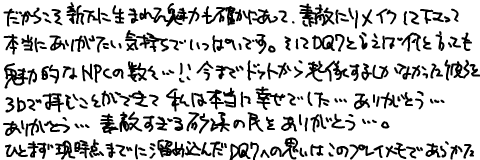 だからこそ新たに生まれる魅力も確かにあって、素敵にリメイクして下さって
本当にありがたい気持ちでいっぱいです。そしてDQ7と言えば何と言っても
魅力的なNPCの数々…!! 今までドットから想像するしかなかった彼らを
3Dで拝むことができて私は本当に幸せでした…ありがとう…
ありがとう… 素敵すぎる砂漠の民をありがとう…。
ひとまず現時点までに溜め込んだDQ7への思いはこのプレイメモであらかた